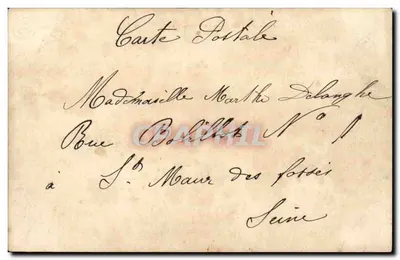 Carte Postale
Mademoiselle Marthe Delanghe
Rue N° 1
à St Maur des fossés
Seine